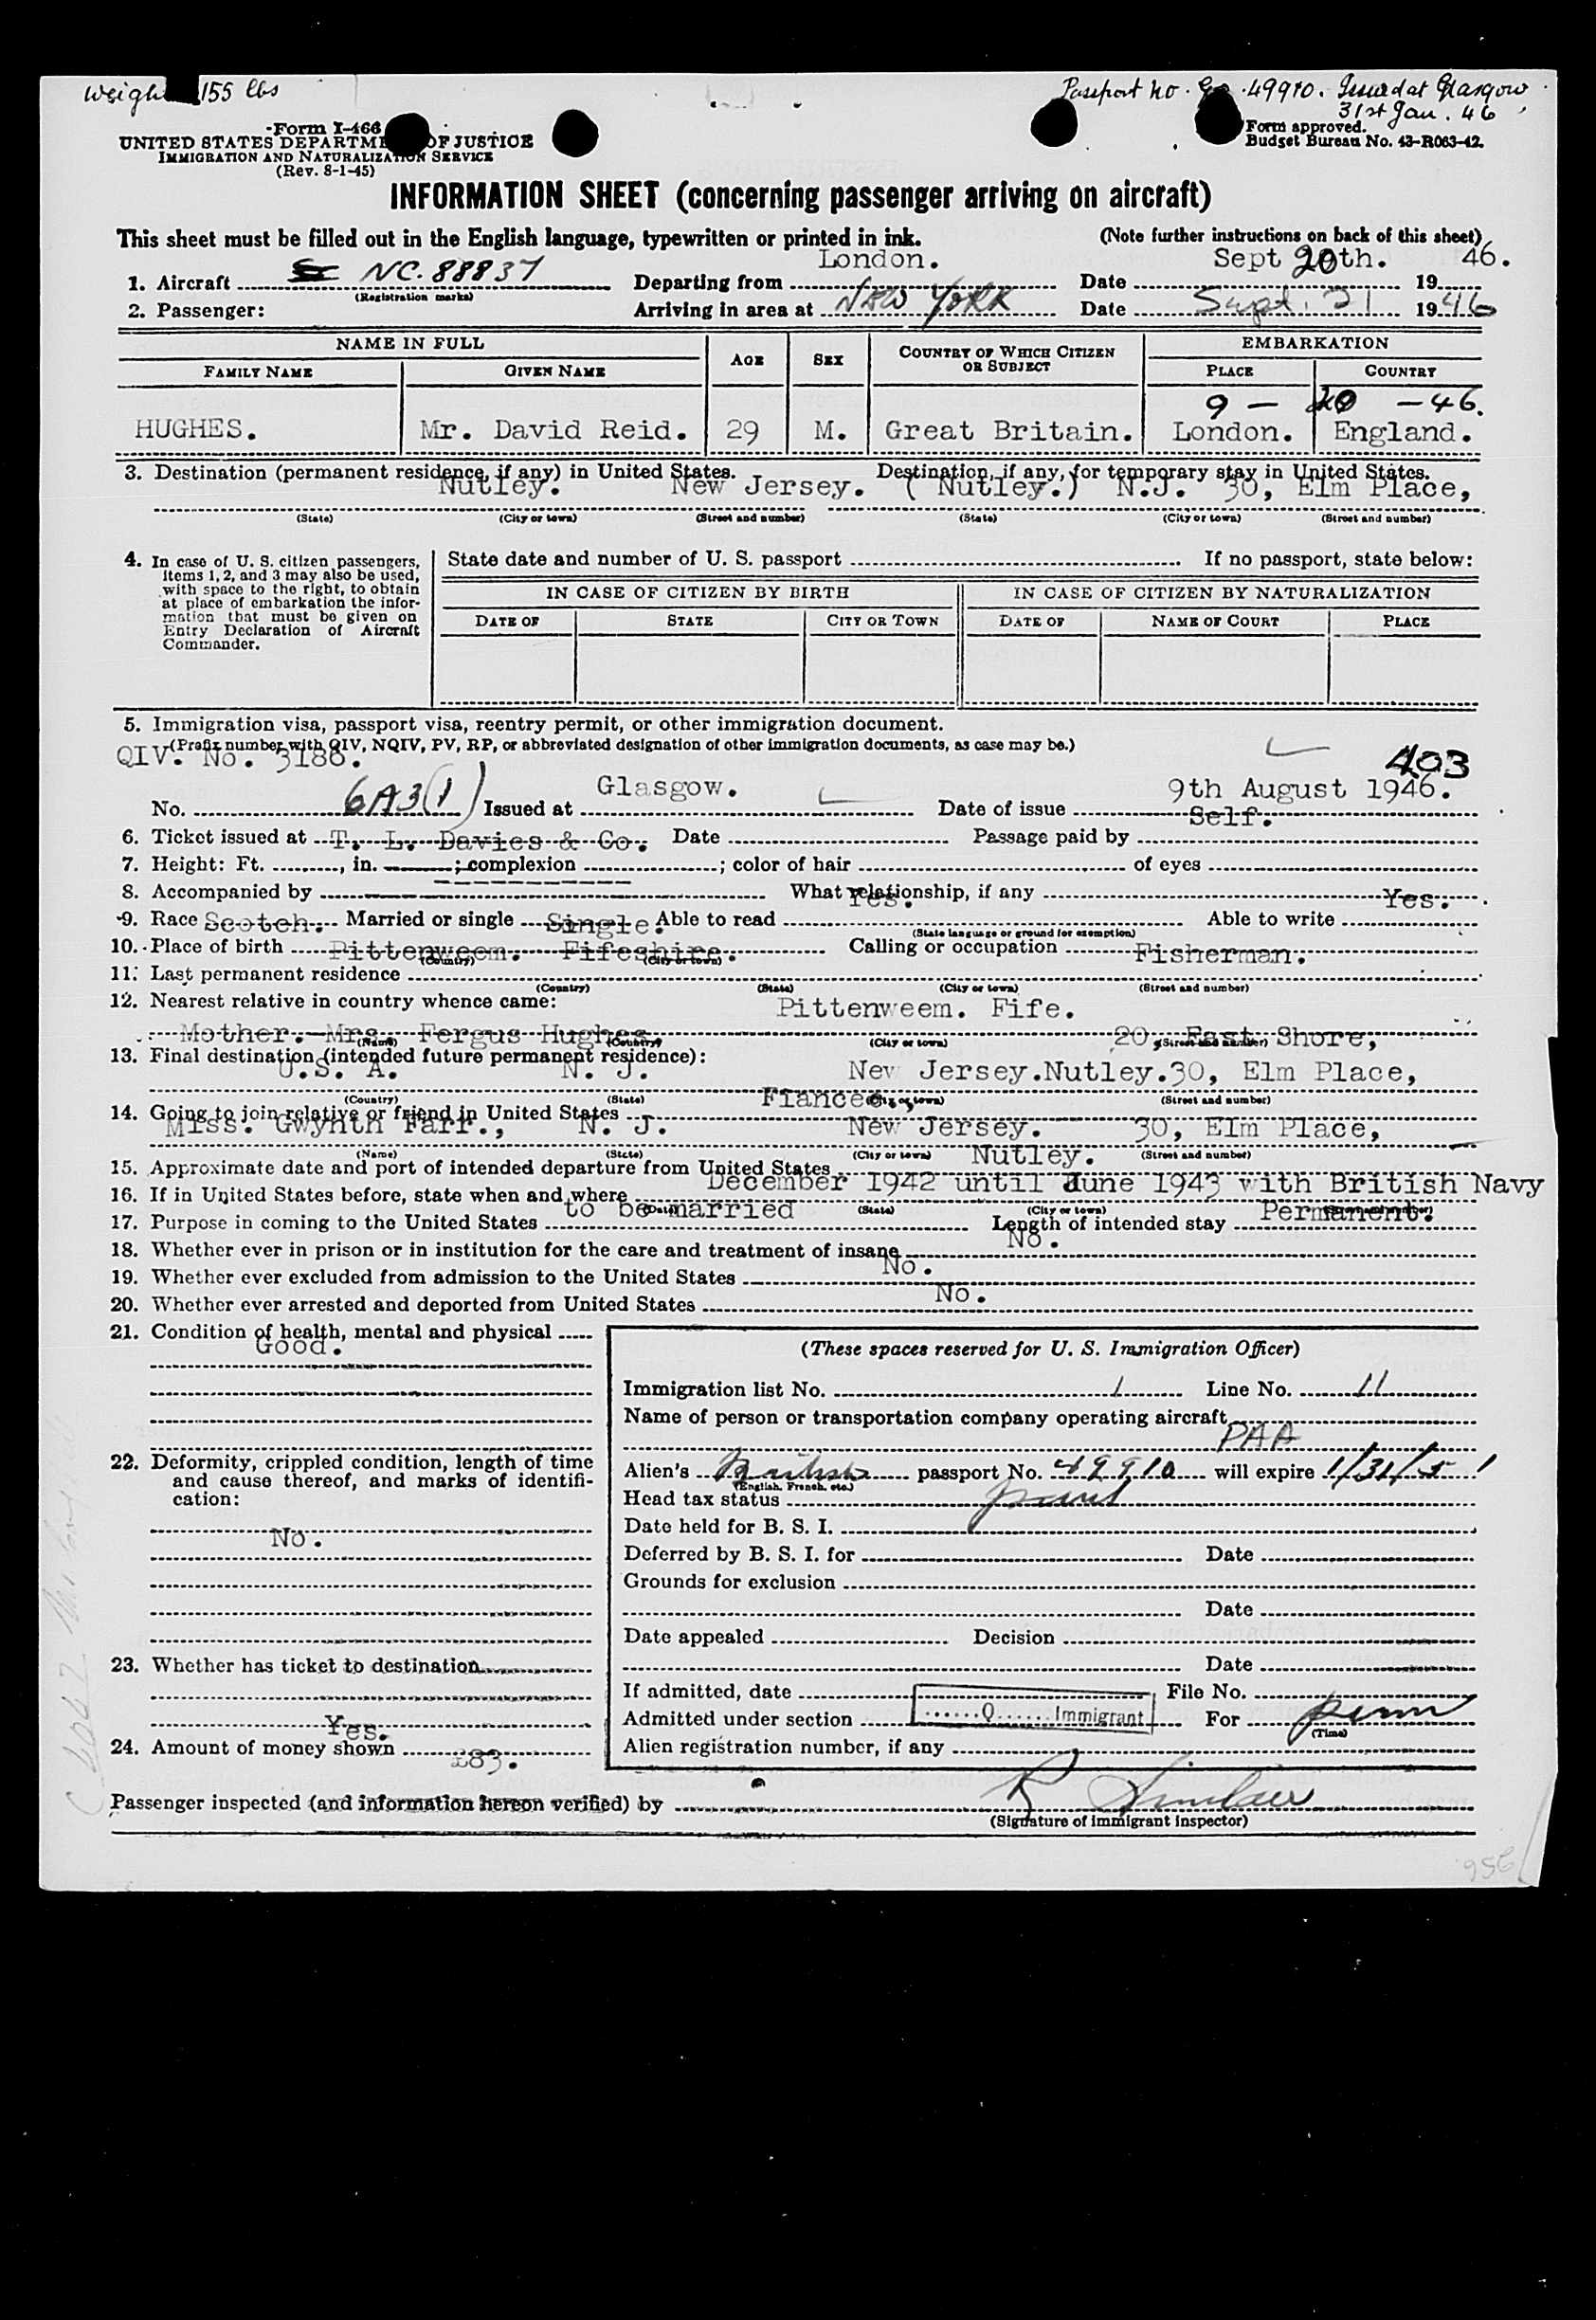 weigh 155 lbs
Passport no. 49910. Issued at Glasgow
31st Jan. 46
Form I-466
UNITED STATES DEPARTMENT OF JUSTICE
IMMIGRATION AND NATURALIZATION SERVICE
(Rev. 8-1-45)
Form approved.
Budget Bureau No. 43-R063-42.
INFORMATION SHEET (concerning passenger arriving on aircraft)
This sheet must be filled out in the English language, typewritten or printed in ink. (Note further instructions on back of this sheet)
1. Aircraft NC. 88837 Departing from London. Date Sept 20th. 1946.
(Registration marks)
2. Passenger: Arriving in area at NEW YORK Date Sept. 21 1946
NAME IN FULL AGE SEX COUNTRY OF WHICH CITIZEN OR SUBJECT EMBARKATION
FAMILY NAME GIVEN NAME PLACE COUNTRY
9 - 20 - 46.
HUGHES. Mr. David Reid. 29 M. Great Britain. London. England.
3. Destination (permanent residence, if any) in United States. Destination, if any, for temporary stay in United States.
Nutley. New Jersey. ( Nutley.) N.J. 30, Elm Place,
(State) (City or town) (Street and number) (State) (City or town) (Street and number)
4. In case of U. S. citizen passengers, items 1, 2, and 3 may also be used, with space to the right, to obtain at place of embarkation the information that must be given on Entry Declaration of Aircraft Commander.
State date and number of U. S. passport If no passport, state below:
IN CASE OF CITIZEN BY BIRTH IN CASE OF CITIZEN BY NATURALIZATION
DATE OF STATE CITY OR TOWN DATE OF NAME OF COURT PLACE
5. Immigration visa, passport visa, reentry permit, or other immigration document.
(Prefix number with QIV, NQIV, PV, RP, or abbreviated designation of other immigration documents, as case may be.)
QIV. No. 3186. 403
No. 6A3(1) Issued at Glasgow. Date of issue 9th August 1946.
6. Ticket issued at T. L. Davies & Co. Date Passage paid by Self.
7. Height: Ft. , in. ; complexion ; color of hair of eyes
8. Accompanied by What relationship, if any
9. Race Scotch. Married or single Single. Able to read Yes. Able to write Yes.
(State language or ground for exemption)
10. Place of birth Pittenweem. Fifeshire. Calling or occupation Fisherman.
(Country) (City or town)
11. Last permanent residence
(Country) (State) (City or town) (Street and number)
12. Nearest relative in country whence came: Pittenweem. Fife.
Mother. Mrs. Fergus Hughes 20, East Shore,
(Name) (Country) (City or town) (Street and number)
13. Final destination (intended future permanent residence):
U.S. A. N. J. New Jersey.Nutley.30, Elm Place,
(Country) (State) (City or town) (Street and number)
14. Going to join relative or friend in United States Fiancee.,
Miss. Gwynth Farr., N. J. New Jersey. 30, Elm Place,
(Name) (State) (City or town) Nutley. (Street and number)
15. Approximate date and port of intended departure from United States
16. If in United States before, state when and where December 1942 until June 1943 with British Navy
(Date) (State) (City or town) (Street and number)
17. Purpose in coming to the United States to be married Length of intended stay Permanent.
18. Whether ever in prison or in institution for the care and treatment of insane No.
19. Whether ever excluded from admission to the United States No.
20. Whether ever arrested and deported from United States No.
21. Condition of health, mental and physical
Good.
22. Deformity, crippled condition, length of time and cause thereof, and marks of identification:
No.
23. Whether has ticket to destination
Yes.
24. Amount of money shown £83.
(These spaces reserved for U. S. Immigration Officer)
Immigration list No. 1 Line No. 11
Name of person or transportation company operating aircraft
PAA
Alien's British passport No. 49910 will expire 1/31/51
(English, French, etc.)
Head tax status
Date held for B. S. I.
Deferred by B. S. I. for Date
Grounds for exclusion
Date
Date appealed Decision
Date
If admitted, date File No.
Admitted under section Q Immigrant For perm
(Time)
Alien registration number, if any
Passenger inspected (and information hereon verified) by R Sinclair
(Signature of immigrant inspector)
956